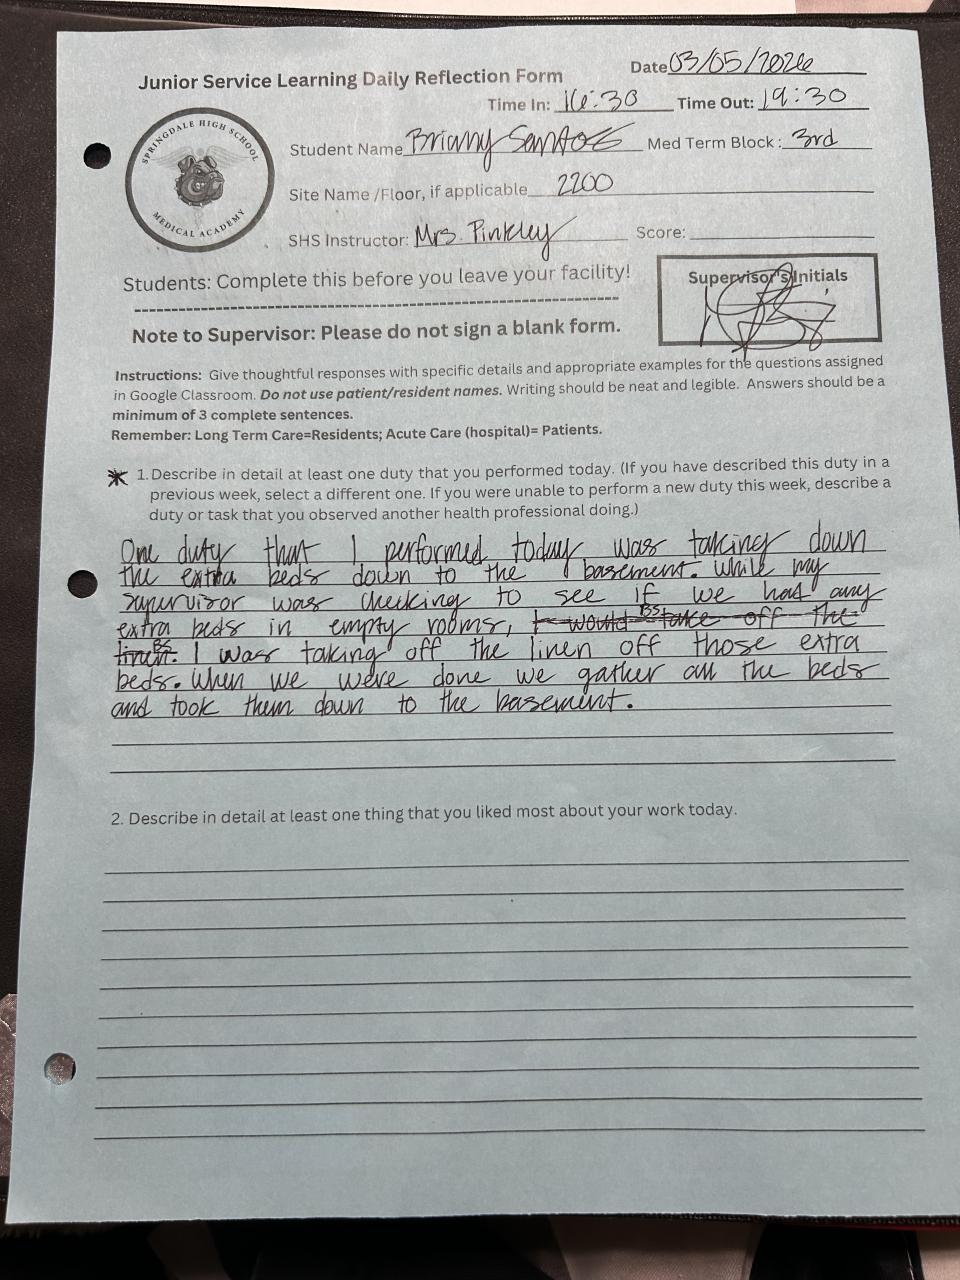 Junior Service Learning Daily Reflection Form
Date 03/05/2026
Time In: 16:30 Time Out: 19:30
SPRINGDALE HIGH SCHOOL
MEDICAL ACADEMY
Student Name Briany Santos Med Term Block: 3rd
Site Name /Floor, if applicable 2200
SHS Instructor: Mrs. Pinkley Score:
Students: Complete this before you leave your facility!
Supervisor's Initials
Note to Supervisor: Please do not sign a blank form.
Instructions: Give thoughtful responses with specific details and appropriate examples for the questions assigned
in Google Classroom. Do not use patient/resident names. Writing should be neat and legible. Answers should be a
minimum of 3 complete sentences.
Remember: Long Term Care=Residents; Acute Care (hospital)= Patients.
1. Describe in detail at least one duty that you performed today. (If you have described this duty in a
previous week, select a different one. If you were unable to perform a new duty this week, describe a
duty or task that you observed another health professional doing.)
One duty that I performed today was taking down
the extra beds down to the basement. While my
supervisor was checking to see if we had any
extra beds in empty rooms, I would BS take off the
linen. BS I was taking off the linen off those extra
beds. When we were done we gather all the beds
and took them down to the basement.
2. Describe in detail at least one thing that you liked most about your work today.